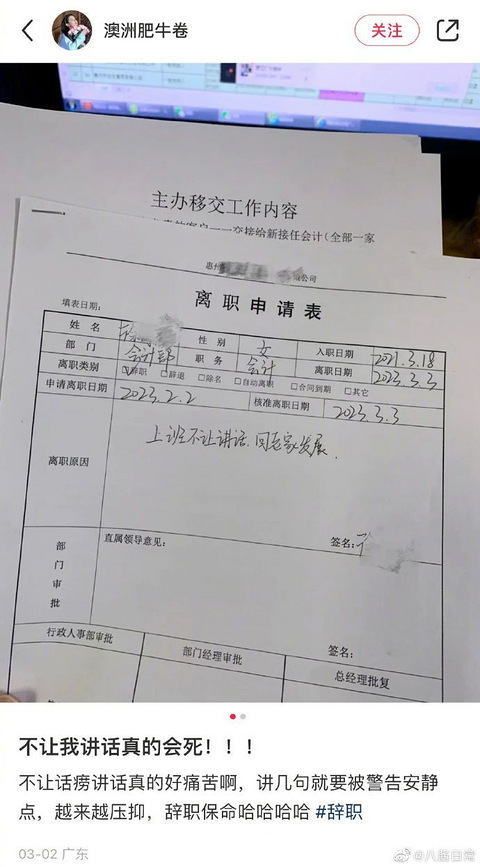 澳洲肥牛卷
关注
主办移交工作内容
交接给新接任会计(全部一家
惠州 公司
离职申请表
填表日期:
姓名 性别 女 入职日期 2021.3.18
部门 会计部 职务 会计 离职日期 2023.3.3
离职类别 ☑辞职 □辞退 □除名 □自动离职 □合同到期 □其它
申请离职日期 2023.2.2 核准离职日期 2023.3.3
离职原因
上班不让讲话,回老家发展.
签名:
部门审批
直属领导意见:
签名:
行政人事部审批 部门经理审批 总经理批复
不让我讲话真的会死!!!
不让话痨讲话真的好痛苦啊,讲几句就要被警告安静
点,越来越压抑,辞职保命哈哈哈哈 #辞职
03-02 广东
@八酱日常